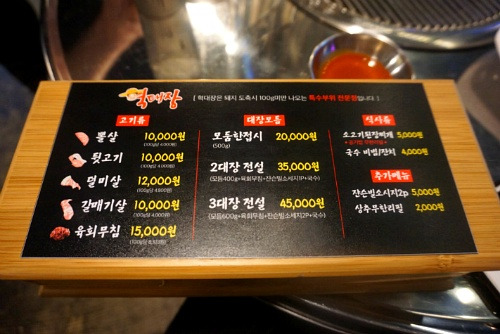 [ 학대장은 돼지 도축시 100g미만 나오는 특수부위 전문점입니다. ]
고기류
뽈살 10,000원
뒷고기 10,000원
덜미살 12,000원
갈매기살 10,000원
육회무침 15,000원
대장모듬
모둠한접시 20,000원
(500g)
2대장 전설 35,000원
(모듬400g+육회무침+잔슨빌소세지1P+국수)
3대장 전설 45,000원
(모듬600g+육회무침+잔슨빌소세지2P+국수)
식사류
소고기된장찌개 5,000원
국수 비빔/잔치 4,000원
추가메뉴
쟌슨빌소시지2p 5,000원
상추무한리필 2,000원